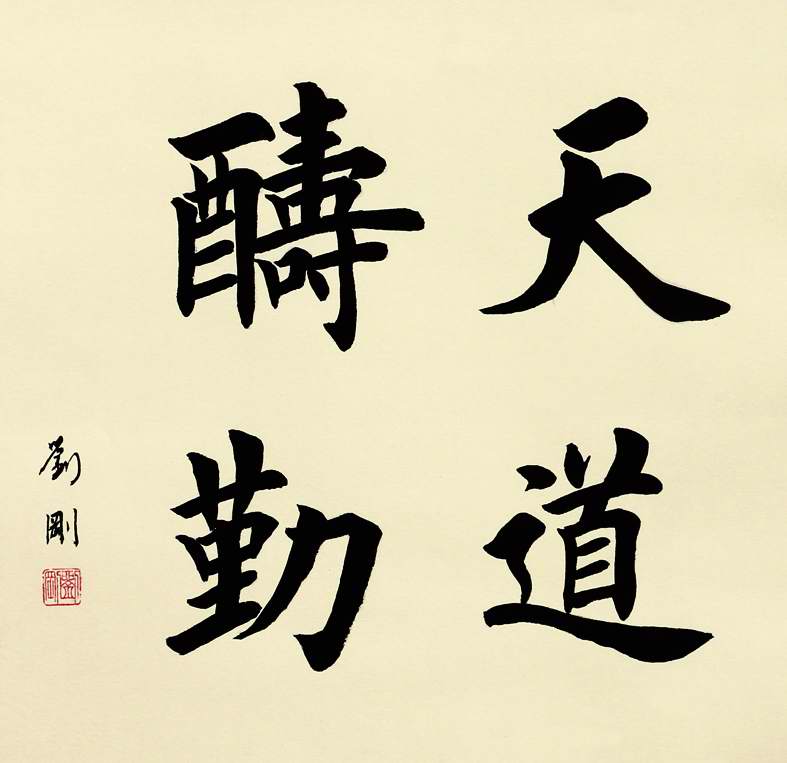 天道
醻勤
劉剛